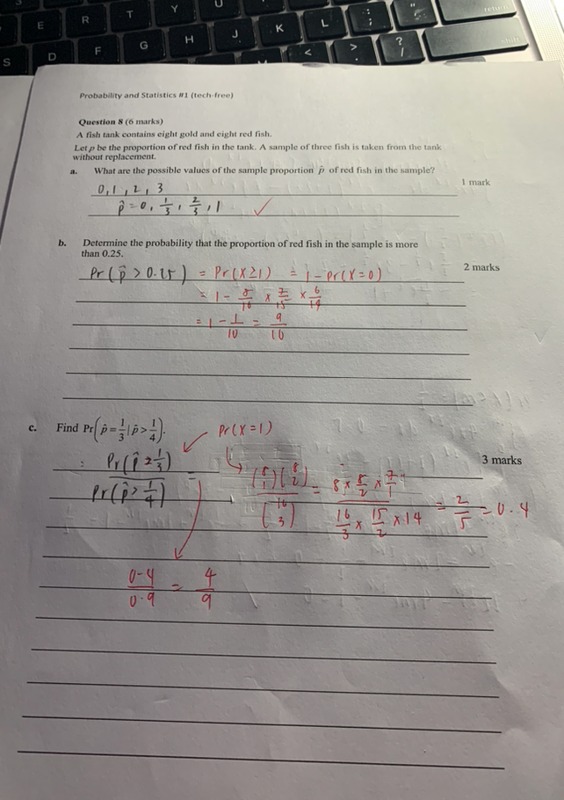 E R T Y U
S D F G H J K L
Probability and Statistics #1 (tech-free)
Question 8 (6 marks)
A fish tank contains eight gold and eight red fish.
Let p be the proportion of red fish in the tank. A sample of three fish is taken from the tank
without replacement.
a. What are the possible values of the sample proportion p̂ of red fish in the sample?
1 mark
0, 1, 2, 3
p̂ = 0, 1/3, 2/3, 1 ✓
b. Determine the probability that the proportion of red fish in the sample is more
than 0.25.
2 marks
Pr(p̂ > 0.25) = Pr(X≥1) = 1 - Pr(X=0)
= 1 - 8/16 × 7/15 × 6/14
= 1 - 1/10 = 9/10
c. Find Pr(p̂ = 1/3 | p̂ > 1/4).
Pr(X=1)
3 marks
Pr(p̂ = 1/3) / Pr(p̂ > 1/4)
(8 1)(8 2) / (16 3) = 8 × 8/2 × 7/1 / 16/3 × 15/2 × 14 = 2/5 = 0.4
0.4/0.9 = 4/9